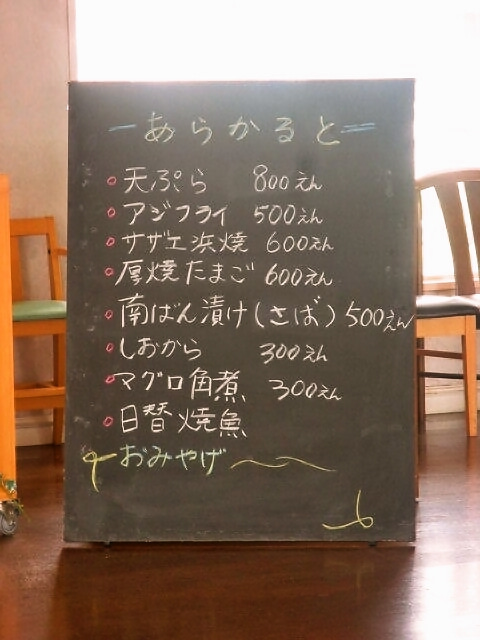 ー あらかると ＝
○ 天ぷら 800えん
○ アジフライ 500えん
○ サザエ浜焼 600えん
○ 厚焼たまご 600えん
○ 南ばん漬け(さば) 500えん
○ しおから 300えん
○ マグロ角煮 300えん
○ 日替焼魚
おみやげ